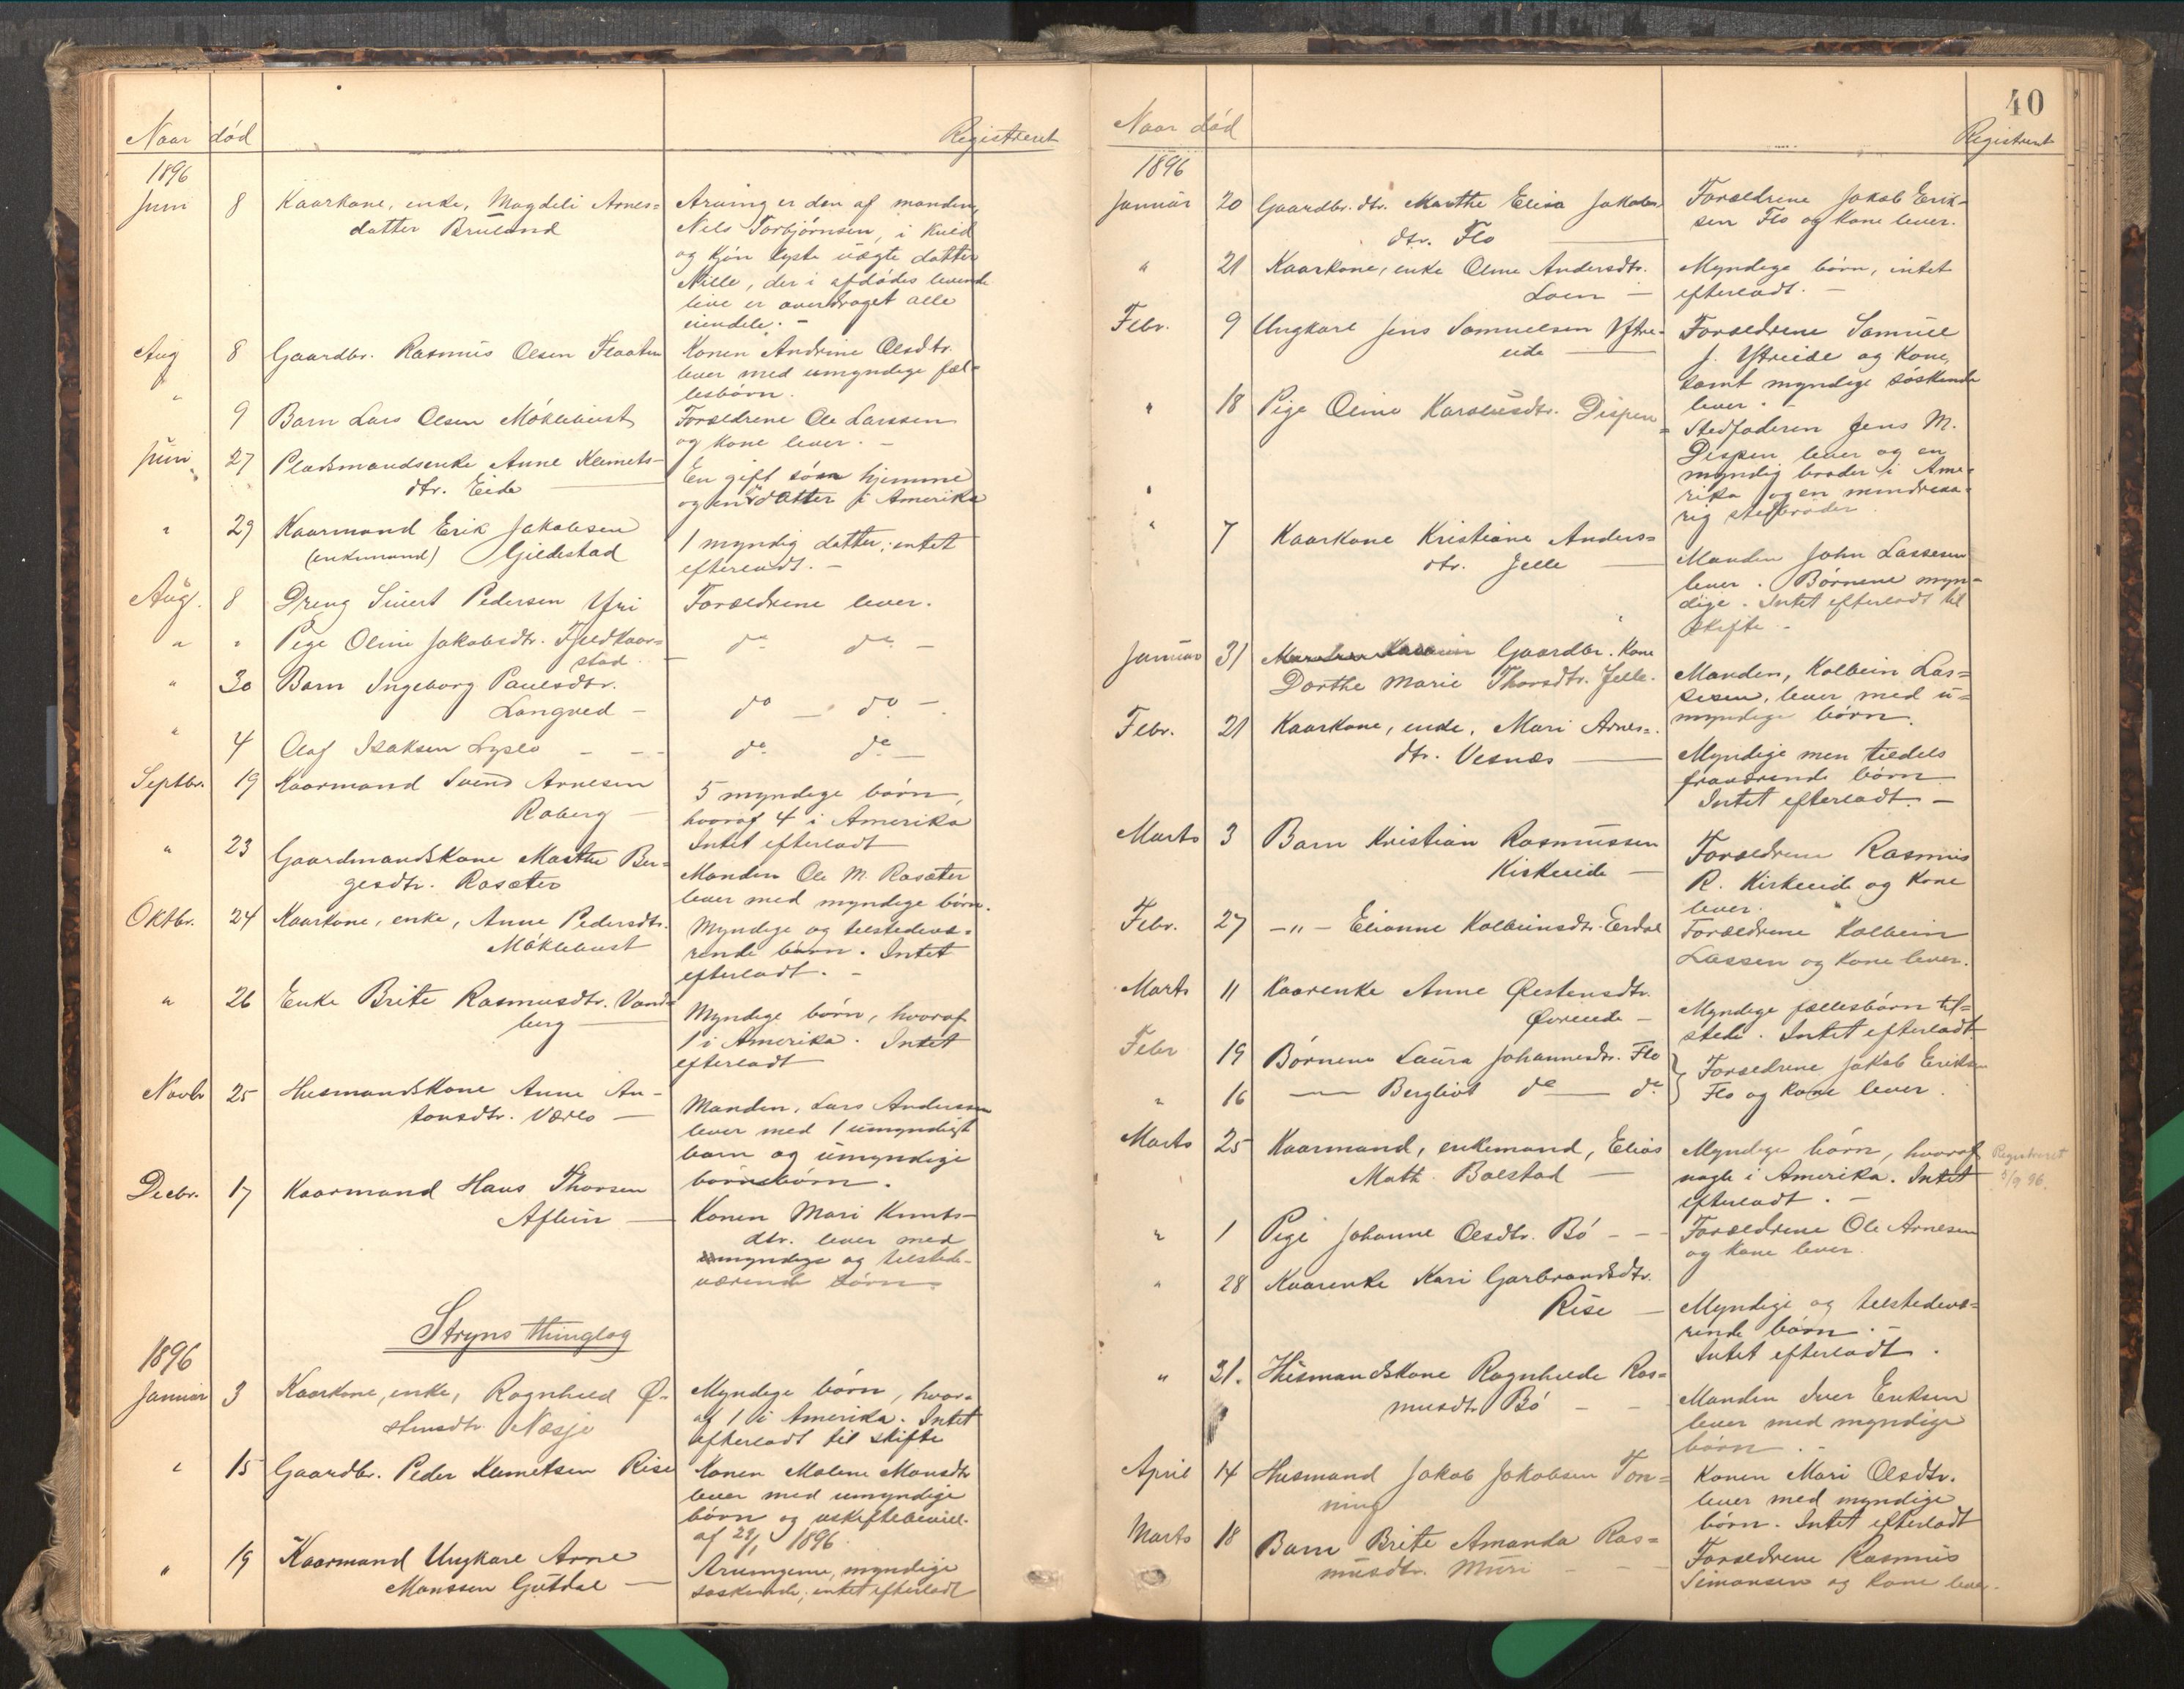 Naar død
Registreret
1896
Juni 8 Kaarkone, enke, Magdeli Arnes=
datter Bruland
Arving er den af manden,
Nils Torbjørnsen, i kuld
og kjøn lyste uægte datter
Nille, der i afdødes levende
live er overdraget alle
eiendele. –
Aug 8 Gaardbr. Rasmus Olsen Flaaten
Konen Andrine Olsdtr.
lever med umyndige fæl=
lesbørn.
" 9 Barn Lars Olsen Møklebust
Forældrene Ole Larssen
og kone lever. –
Juni 27 Pladsmandsenke Anne Klemets-
dtr. Eide
En gift søn hjemme
og en datter i Amerika
" 29 Kaarmand Erik Jakobsen
(enkemand) Gjildestad
1 myndig datter; intet
efterladt. –
Aug. 8 Dreng Sivert Pedersen Yri
Forældrene lever.
" " Pige Oline Jakobsdtr. Fjeldkaar=
stad. –
do do –
" 30 Barn Ingeborg Paulsdtr.
Langved –
do – do –.
" 4 Olaf Isaksen Lyslo – – –
do do –
Septbr. 19 Kaarmand Svend Arnesen
Raberg –
5 myndige børn,
hvoraf 4 i Amerika
Intet efterladt
" 23 Gaardmandskone Marthe Ber=
gesdtr. Rosæter
Manden Ole M. Rosæter
lever med myndige børn.
Oktbr. 24 Kaarkone, enke, Anne Pedersdtr.
Møklebust
Myndige og tilstedevæ=
rende børn. Intet
efterladt. –
" 26 Enke Brite Rasmusdtr. Vand=
berg
Myndige børn, hvoraf
1 i Amerika. Intet
efterladt
Novbr 25 Husmandskone Anne An-
tonsdtr. Værlo –
Manden, Lars Andersen
lever med 1 umyndigt
barn og umyndige
børnebørn.
Decbr. 17 Kaarmand Hans Thorsen
Aflein –
Konen Mari Knuts-
dtr. lever med
myndige og tilstede-
værende børn.
Stryns thinglag
1896
Januar 3 Kaarkone, enke, Ragnhild Ø-
stensdtr. Næsje
Myndige børn, hvor=
af 1 i Amerika. Intet
efterladt til skifte
" 15 Gaardbr. Peder Klemetsen Rise
Konen Malene Monsdtr
lever med umyndige
børn og uskiftebevill.
af 29/1 1896.
" 19 Kaarmand Ungkarl Arne
Monssen Gutdal –
Arvingerne, myndige
søskende; intet efterladt
40
Naar død
Registreret
1896
Januar 20 Gaardbr. dtr. Marthe Elisa Jakobs.
dtr. Flo
Forældrene Jakob Erik-
sen Flo og kone lever.
" 21 Kaarkone, enke Oline Andersdtr.
Loen –
Myndige børn, intet
efterladt. –
Febr. 9 Ungkarl Jens Samuelsen Ytre-
eide
Forældrene Samuel
J. Ytreeide og kone,
samt myndige søskende
lever. –
" 18 Pige Oline Karolusdtr. Dispen
Stedfaderen Jens M.
Dispen lever og en
myndig broder i Ame=
rika og en mindreaa=
rig stedbroder.
" 7 Kaarkone Kristiane Anders=
dtr. Jelle –
Manden John Lassesen
lever. Børnene myn=
dige. Intet efterladt til
skifte –
Januar 31 Gaardbr. kone
Dorthe Marie Thorsdtr. Jelle.
Manden, Kolbein Las=
sesen, lever med u=
myndige børn.
Febr. 21 Kaarkone, enke, Mari Arnes=
dtr. Vesnæs
Myndige men tildels
fraværende børn
Intet efterladt. –
Marts 3 Barn Kristian Rasmussen
Kirkeeide –
Forældrene Rasmus
R. Kirkeeide og kone
lever.
Febr. 27 –"– Elianne Kolbeinsdtr. Erdal
Forældrene Kolbein
Lassen og kone lever.
Marts 11 Kaarenke Anne Øistensdtr.
Øvreeide –
Myndige fællesbørn til=
stede. Intet efterladt
Febr 19 Børnene Laura Johannesdtr. Flo
" 16 — Bergliot do — do
Forældrene Jakob Eriksen
Flo og kone lever.
Marts 25 Kaarmand, enkemand, Elias
Math. Bolstad –
Myndige børn, hvoraf
nogle i Amerika. Intet
efterladt. –
Registreret
3/9 96.
" 1 Pige Johanne Olsdtr. Bø – –
Forældrene Ole Arnesen
og kone lever.
" 28 Kaarenke Kari Garbrandsdtr.
Rise –
Myndige og tilstedevæ=
rende børn. –
Intet efterladt.
" 31. Husmandskone Ragnhilde Ras=
musdtr Bø – –
Manden Iver Eriksen
lever med myndige
børn. –
April 14 Husmand Jakob Jakobsen Ton=
ning
Konen Mari Olsdtr.
lever med myndige
børn. Intet efterladt
Marts 18 Barn Brite Amanda Ras=
musdtr. Muri –
Forældrene Rasmus
Simonsen og kone lever.